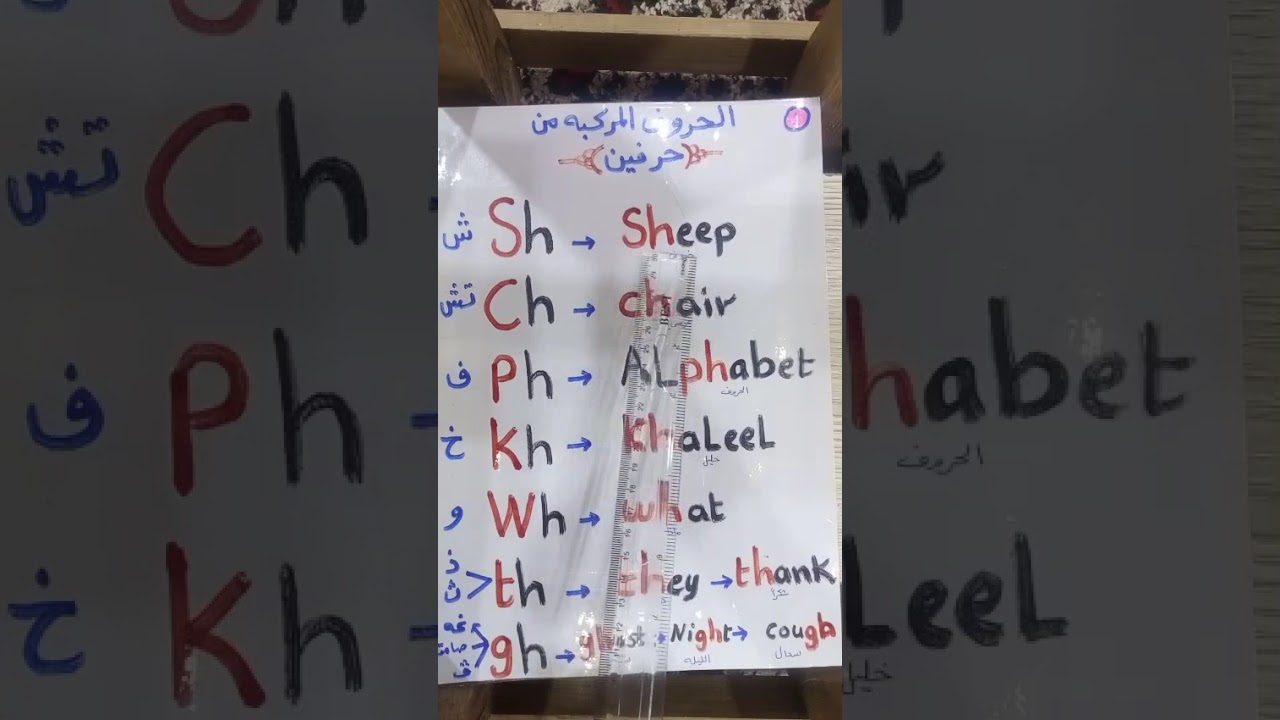 الحروف المركبه من
(حرفين)
ش Sh → Sheep
تش Ch → chair
ف Ph → ALphabet
الحروف
خ Kh → KhaLeeL
خليل
و Wh → what
ذ ث > th → they → thank
شكراً
صامته ف > gh → ghost → Night → cough
الليله سعال